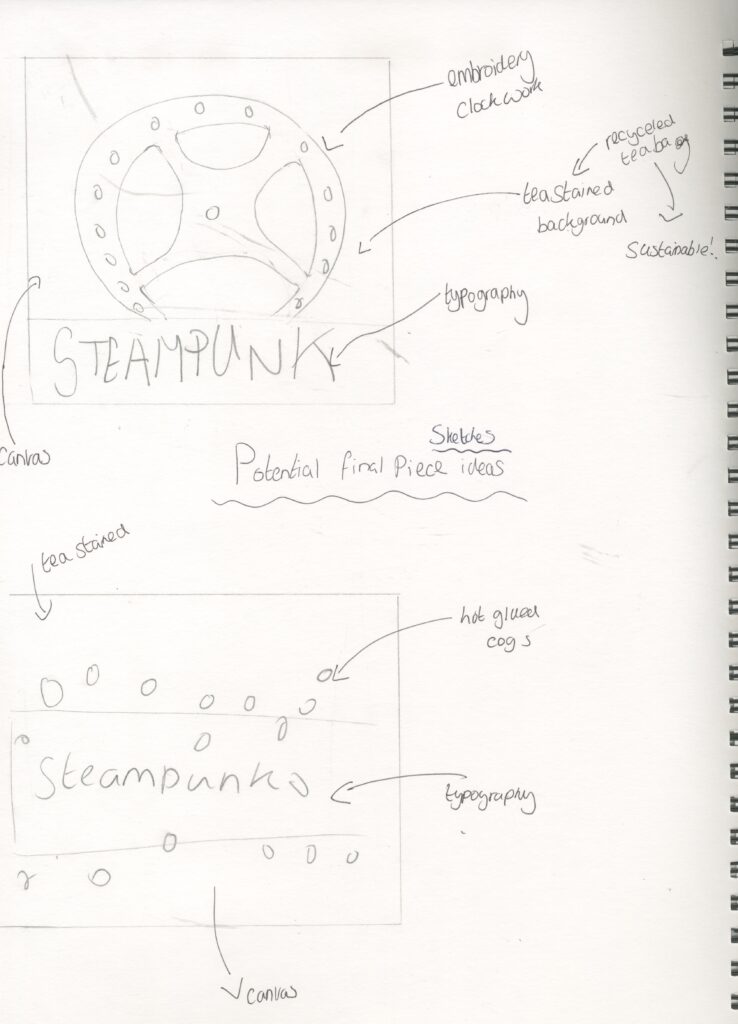 embroidery
clockwork
recyceled
teabag
teastained
background
Sustainable!
typography
STEAMPUNK
Canvas
Sketches
Potential final Piece ideas
tea stained
hot glued
cogs
Steampunk
typography
canvas